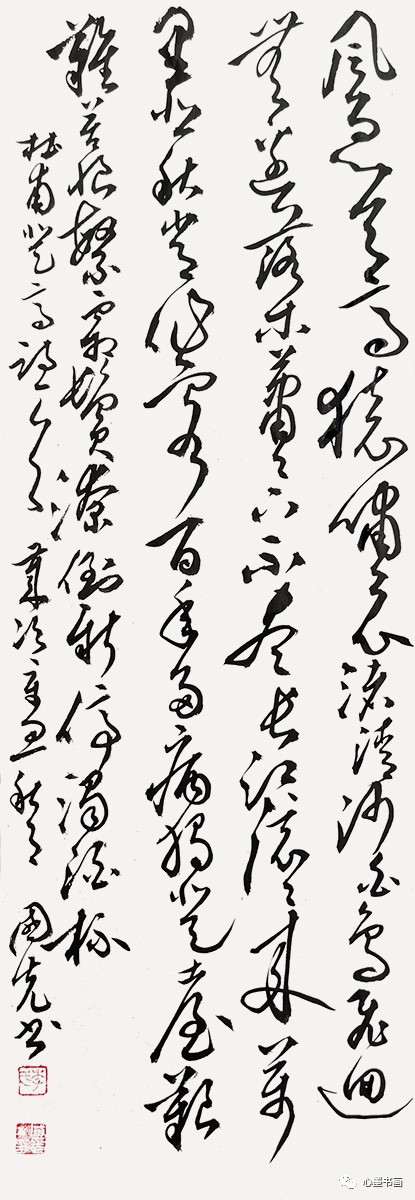 風急天高猿嘯哀渚清沙白鳥飛迴
無邊落木蕭々下不盡長江滾々來萬
里悲秋常作客百年多病獨登臺艱
難苦恨繁霜鬢潦倒新停濁酒杯
杜甫登高詩 國克書
心墨书画